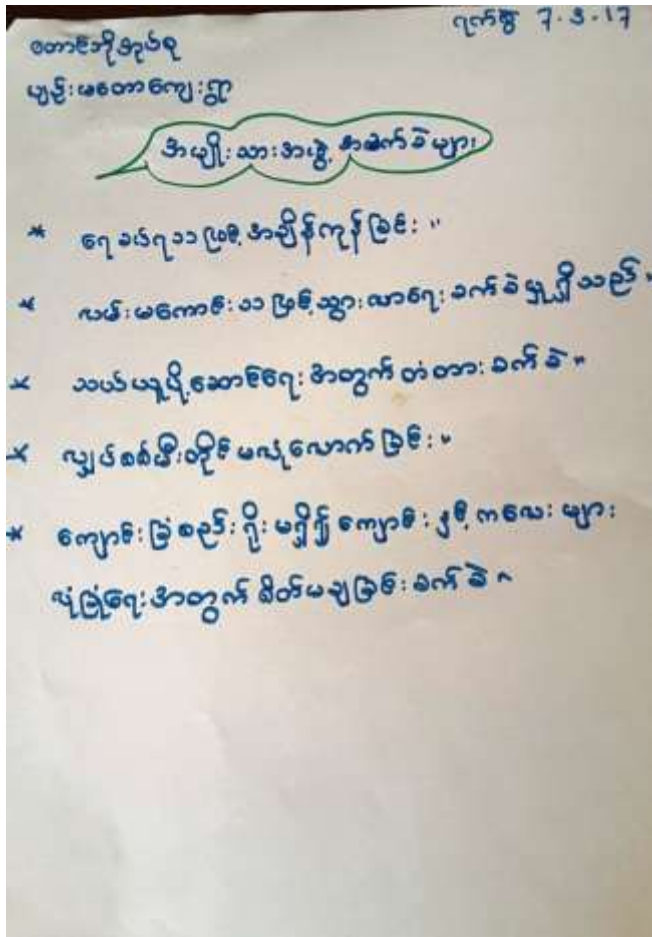 ရက်စွဲ 7.3.17
တောင်ဘို့အုပ်စု
ပျဉ်းမတောကျေးရွာ
အမျိုးသားအဖွဲ့ အခက်ခဲများ
* ရေခပ်ရသာဖြင့် အချိန်ကုန်ခြင်း။
* လမ်းမကောင်းသာဖြင့် သွားလာရေးခက်ခဲမှုရှိသည်။
* သယ်ယူပို့ဆောင်ရေးအတွက် တံတားခက်ခဲ။
* လျှပ်စစ်မီးတိုင်မလုံလောက်ခြင်း။
* ကျောင်းခြံစည်းရိုးမရှိ၍ ကျောင်းနှင့်ကလေးများ
လုံခြုံရေးအတွက် စိတ်မချခြင်းခက်ခဲ။